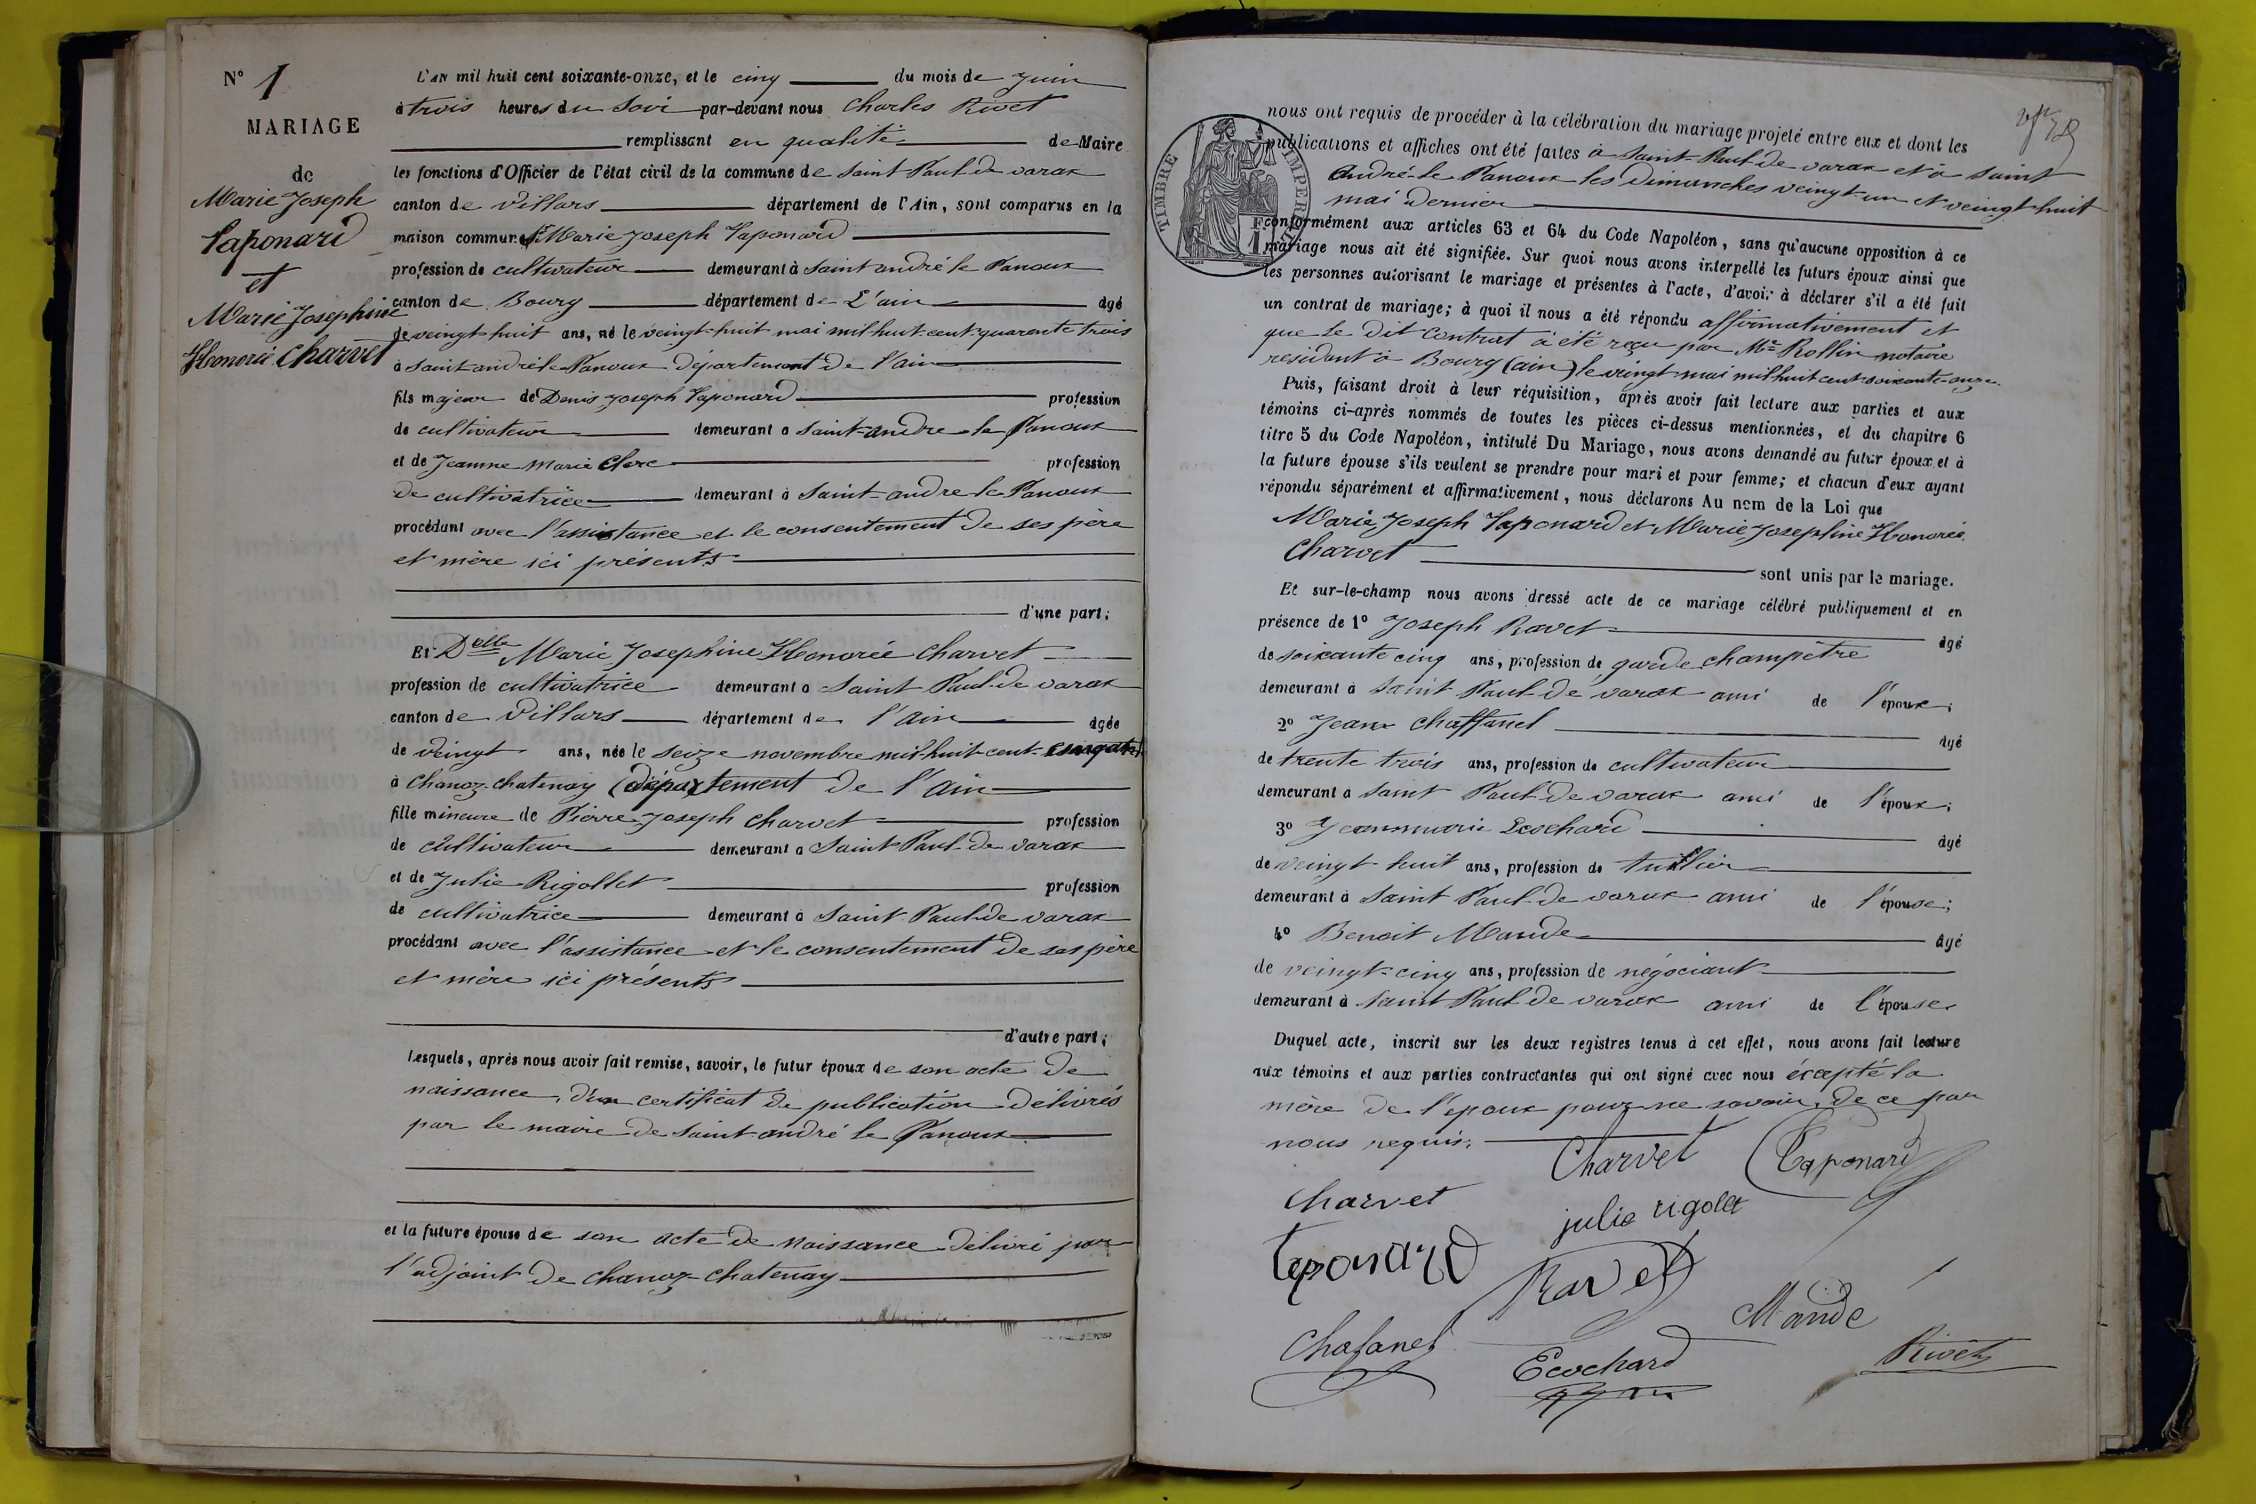 N° 1
MARIAGE
de
Marie Joseph
Taponard
et
Marie Josephine
Honorée Charvet
L'AN mil huit cent soixante-onze, et le cinq du mois de Juin
à trois heures du Soir par-devant nous Charles Rivet
remplissant en qualité de Maire
les fonctions d'Officier de l'état civil de la commune de Saint Paul de varax
canton de Villars département de l'Ain, sont comparus en la
maison commune Sr Marie Joseph Taponard
profession de cultivateur demeurant à Saint andré le Panoux
canton de Bourg département de L'ain âgé
de veingt-huit ans, né le veingt-huit mai mil-huit-cent-quarente trois
à Saint-andré-le-Panoux département de l'ain
fils majeur de Denis Joseph Taponard profession
de cultivateur demeurant à Saint-andre-le Panoux
et de Jeanne Marie Clerc profession
de cultivatrice demeurant à Saint-andre le Panoux
procédant avec l'assistance et le consentement de ses père
et mère ici présents
d'une part;
Et Delle Marie Josephine Honorée Charvet
profession de cultivatrice demeurant à Saint Paul-de varax
canton de Villars département de l'Ain âgée
de veingt ans, née le seize novembre mil-huit-cent-cinquante
à Chanoz-chatenay (département de l'Ain
fille mineure de Pierre-Joseph Charvet profession
de cultivateur demeurant à Saint Paul-de varax
et de Julie Rigollet profession
de cultivatrice demeurant à Saint Paul-de varax
procédant avec l'assistance et le consentement de ses père
et mère ici présents
d'autre part;
Lesquels, après nous avoir fait remise, savoir, le futur époux de son acte de
naissance, d'un certificat de publication délivrés
par le maire de Saint-andré le Panoux
et la future épouse de son acte de naissance délivré par
l'adjoint de chanoz-chatenay
nous ont requis de procéder à la célébration du mariage projeté entre eux et dont les
publications et affiches ont été faites à Saint-Paul-de-varax et à Saint
André-le Panoux les dimanches veingt-un et veingt-huit
mai dernier
TIMBRE IMPERIAL
1 F
conformément aux articles 63 et 64 du Code Napoléon, sans qu'aucune opposition à ce
mariage nous ait été signifiée. Sur quoi nous avons interpellé les futurs époux ainsi que
les personnes autorisant le mariage et présentes à l'acte, d'avoir à déclarer s'il a été fait
un contrat de mariage; à quoi il nous a été répondu affirmativement et
que le dit Contrat à été reçu par Me Rollin notaire
residant à Bourg (ain) le veingt mai mil huit cent soixante-onze
Puis, faisant droit à leur réquisition, après avoir fait lecture aux parties et aux
témoins ci-après nommés de toutes les pièces ci-dessus mentionnées, et du chapitre 6
titre 5 du Code Napoléon, intitulé Du Mariage, nous avons demandé au futur époux et à
la future épouse s'ils veulent se prendre pour mari et pour femme; et chacun d'eux ayant
répondu séparément et affirmativement, nous déclarons Au nom de la Loi que
Marie Joseph Taponard et Marie Josephine Honorée
Charvet
sont unis par le mariage.
Et sur-le-champ nous avons dressé acte de ce mariage célébré publiquement et en
présence de 1° Joseph Ravet âgé
de soixante cinq ans, profession de garde champêtre
demeurant à Saint Paul de varax ami de l'époux;
2° Jean Chaffanel âgé
de trente trois ans, profession de cultivateur
demeurant à Saint Paul de varax ami de l'époux;
3° Jeanmarie Ecochard âgé
de veingt huit ans, profession de tuillier
demeurant à Saint Paul de varax ami de l'épouse;
4° Benoit Mande âgé
de veingt-cinq ans, profession de négociant
demeurant à Saint Paul de varax ami de l'épouse
Duquel acte, inscrit sur les deux registres tenus à cet effet, nous avons fait lecture
aux témoins et aux parties contractantes qui ont signé avec nous éxcepté la
mère de l'époux pour ne savoir, de ce par
nous requis.
Charvet Taponard
Charvet julie rigollet
Taponard Ravet
Mande
Chafanel Ecochard Rivet